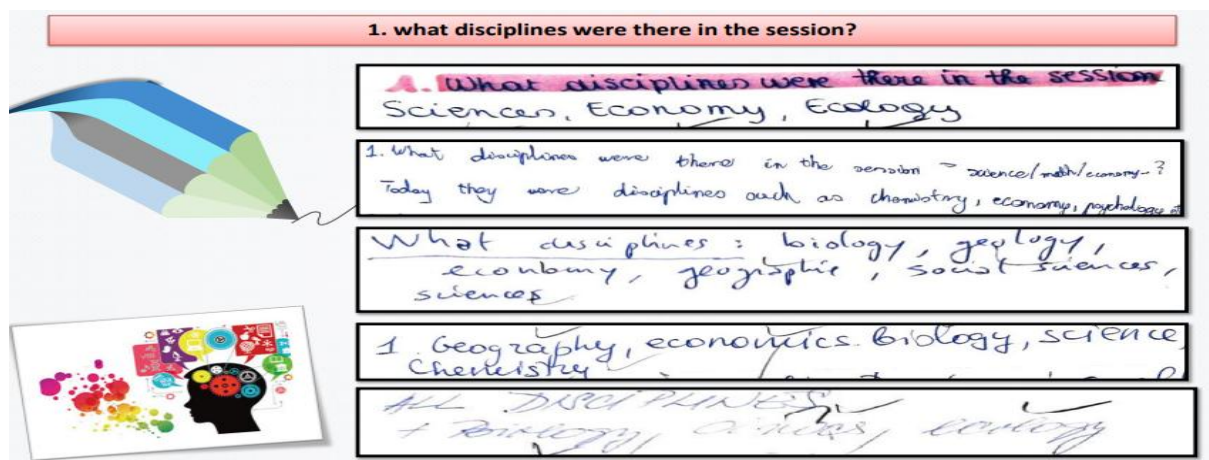 1. what disciplines were there in the session?
1. What disciplines were there in the session
Sciences, Economy, Ecology
1. What disciplines were there in the session = science/math/economy-?
Today they were disciplines such as chemistry, economy, psychology
What disciplines: biology, geology,
economy, geographie, social sciences,
sciences
1. Geography, economics. Biology, science,
Chemistry
ALL DISCIPLINES
+ Biology, ecology